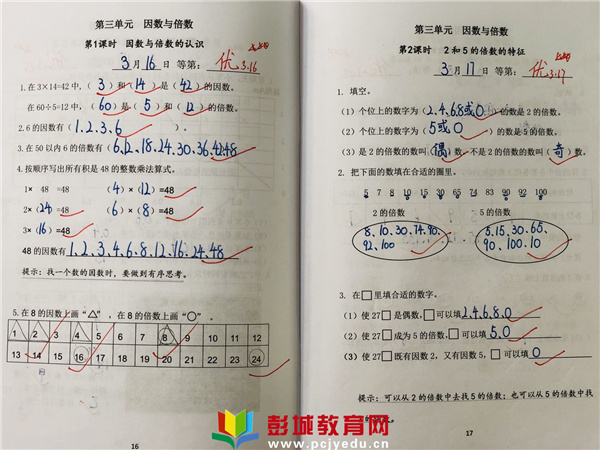 第三单元 因数与倍数
第1课时 因数与倍数的认识
3月16日 等第：优 3.16
1.在3×14=42中，（3）和（14）是（42）的因数。
在60÷5=12中，（60）是（5）和（12）的倍数。
2.6的因数有（1、2、3、6）。
3.在50以内6的倍数有（6、12、18、24、30、36、42、48
4.按顺序写出所有积是48的整数乘法算式。
1× 48 =48 （4）×（12）=48
2×（24）=48 （6）×（8）=48
3×（16）=48
48的因数有1、2、3、4、6、8、12、16、24、48
提示：找一个数的因数时，要做到有序思考。
5.在8的因数上画“△”，在8的倍数上画“○”。
1 2 3 4 5 6 7 8 9 10 11 12
13 14 15 16 17 18 19 20 21 22 23 24
16
第三单元 因数与倍数
第2课时 2和5的倍数的特征
3月17日 等第：优 3.17
1. 填空。
（1）个位上的数字为（2、4、6、8或0）的数是2的倍数。
（2）个位上的数字为（5或0）的数是5的倍数。
（3）是2的倍数的数叫（偶）数，不是2的倍数的数叫（奇）数。
2. 把下面的数填在合适的圈里。
5 7 8 10 15 30 65 74 83 90 92 100
2的倍数 5的倍数
8、10、30、74、90、 5、15、30、65、
92、100 90、100、10
3. 在□里填合适的数字。
（1）使27□是偶数，□可以填2、4、6、8、0
（2）使27□成为5的倍数，□可以填5、0
（3）使27□既有因数2，又有因数5，□可以填0
提示：可以从2的倍数中去找5的倍数；也可以从5的倍数中找
17
彭城教育网
www.pcjyedu.cn